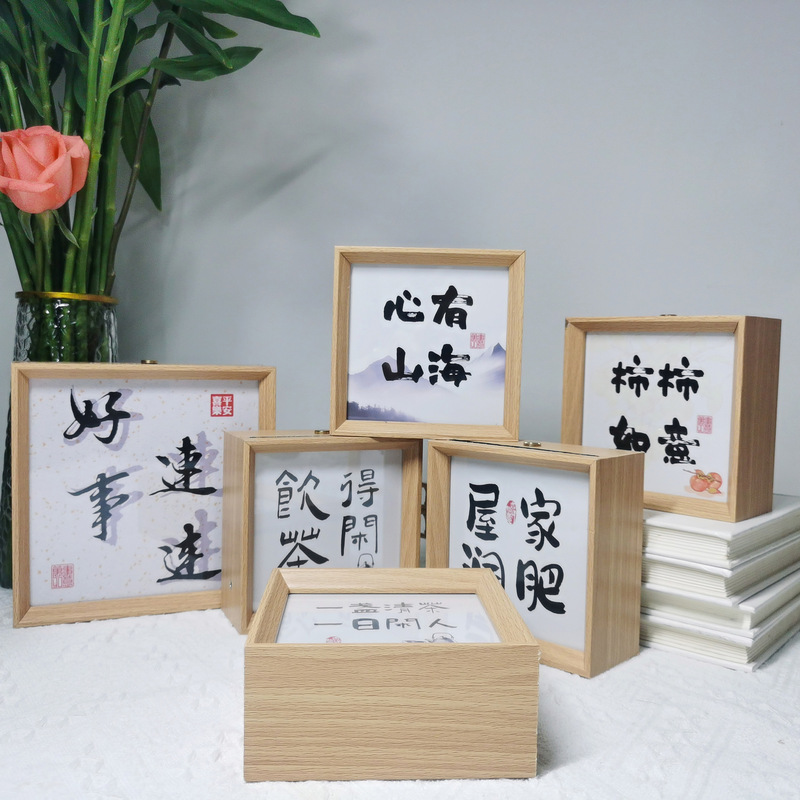 好事
連連
平安
喜樂
心有
山海
柿柿
如意
得閑
飲茶
家肥
屋润
一盏清茶
一日閑人